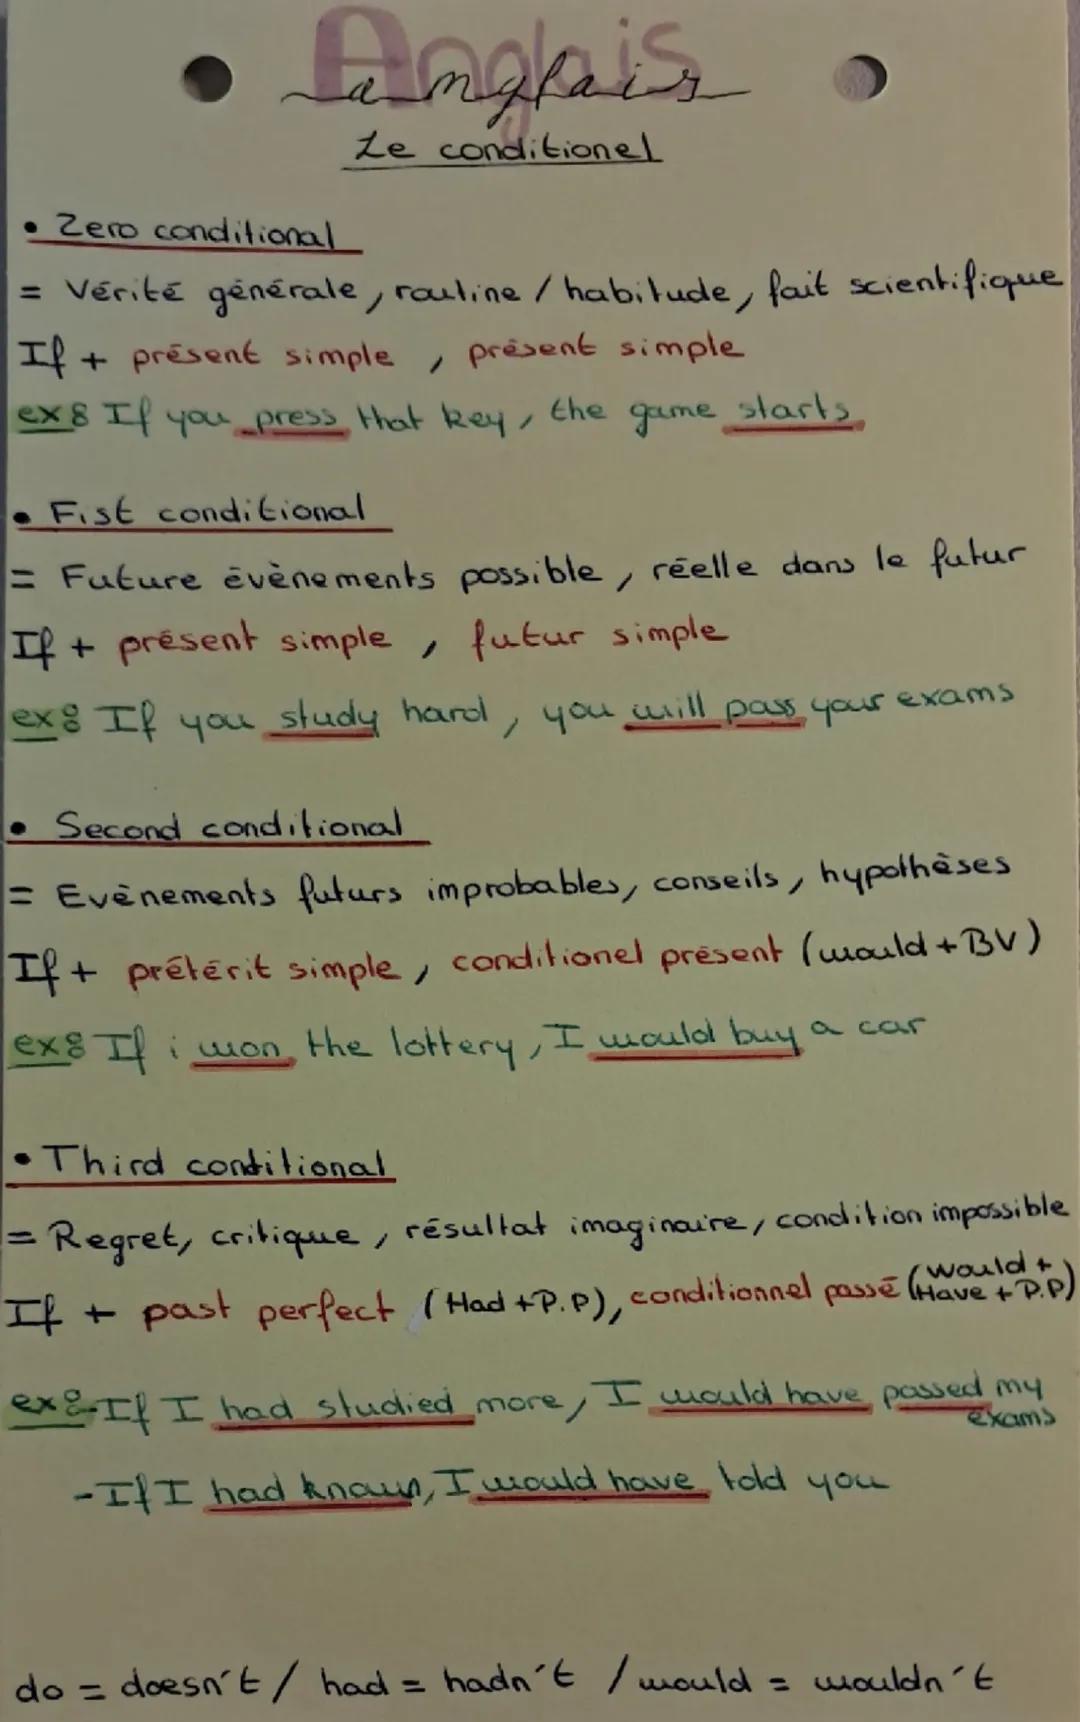 Anglais
anglais
Le conditionel
• Zero conditional
= Vérité générale, routine / habitude, fait scientifique
If + présent simple , présent simple
ex : If you press that key, the game starts
• Fist conditional
= Future évènements possible, réelle dans le futur
If + présent simple , futur simple
ex : If you study hard, you will pass your exams
• Second conditional
= Evènements futurs improbables, conseils, hypothèses
If + prétérit simple, conditionel présent (would + BV)
ex : If i won the lottery, I would buy a car
• Third conditional
= Regret, critique, résultat imaginaire, condition impossible
If + past perfect (Had + P.P), conditionnel passé (would + Have + P.P)
ex : - If I had studied more, I would have passed my exams
- If I had known, I would have told you
do = doesn't / had = hadn't / would = wouldn't